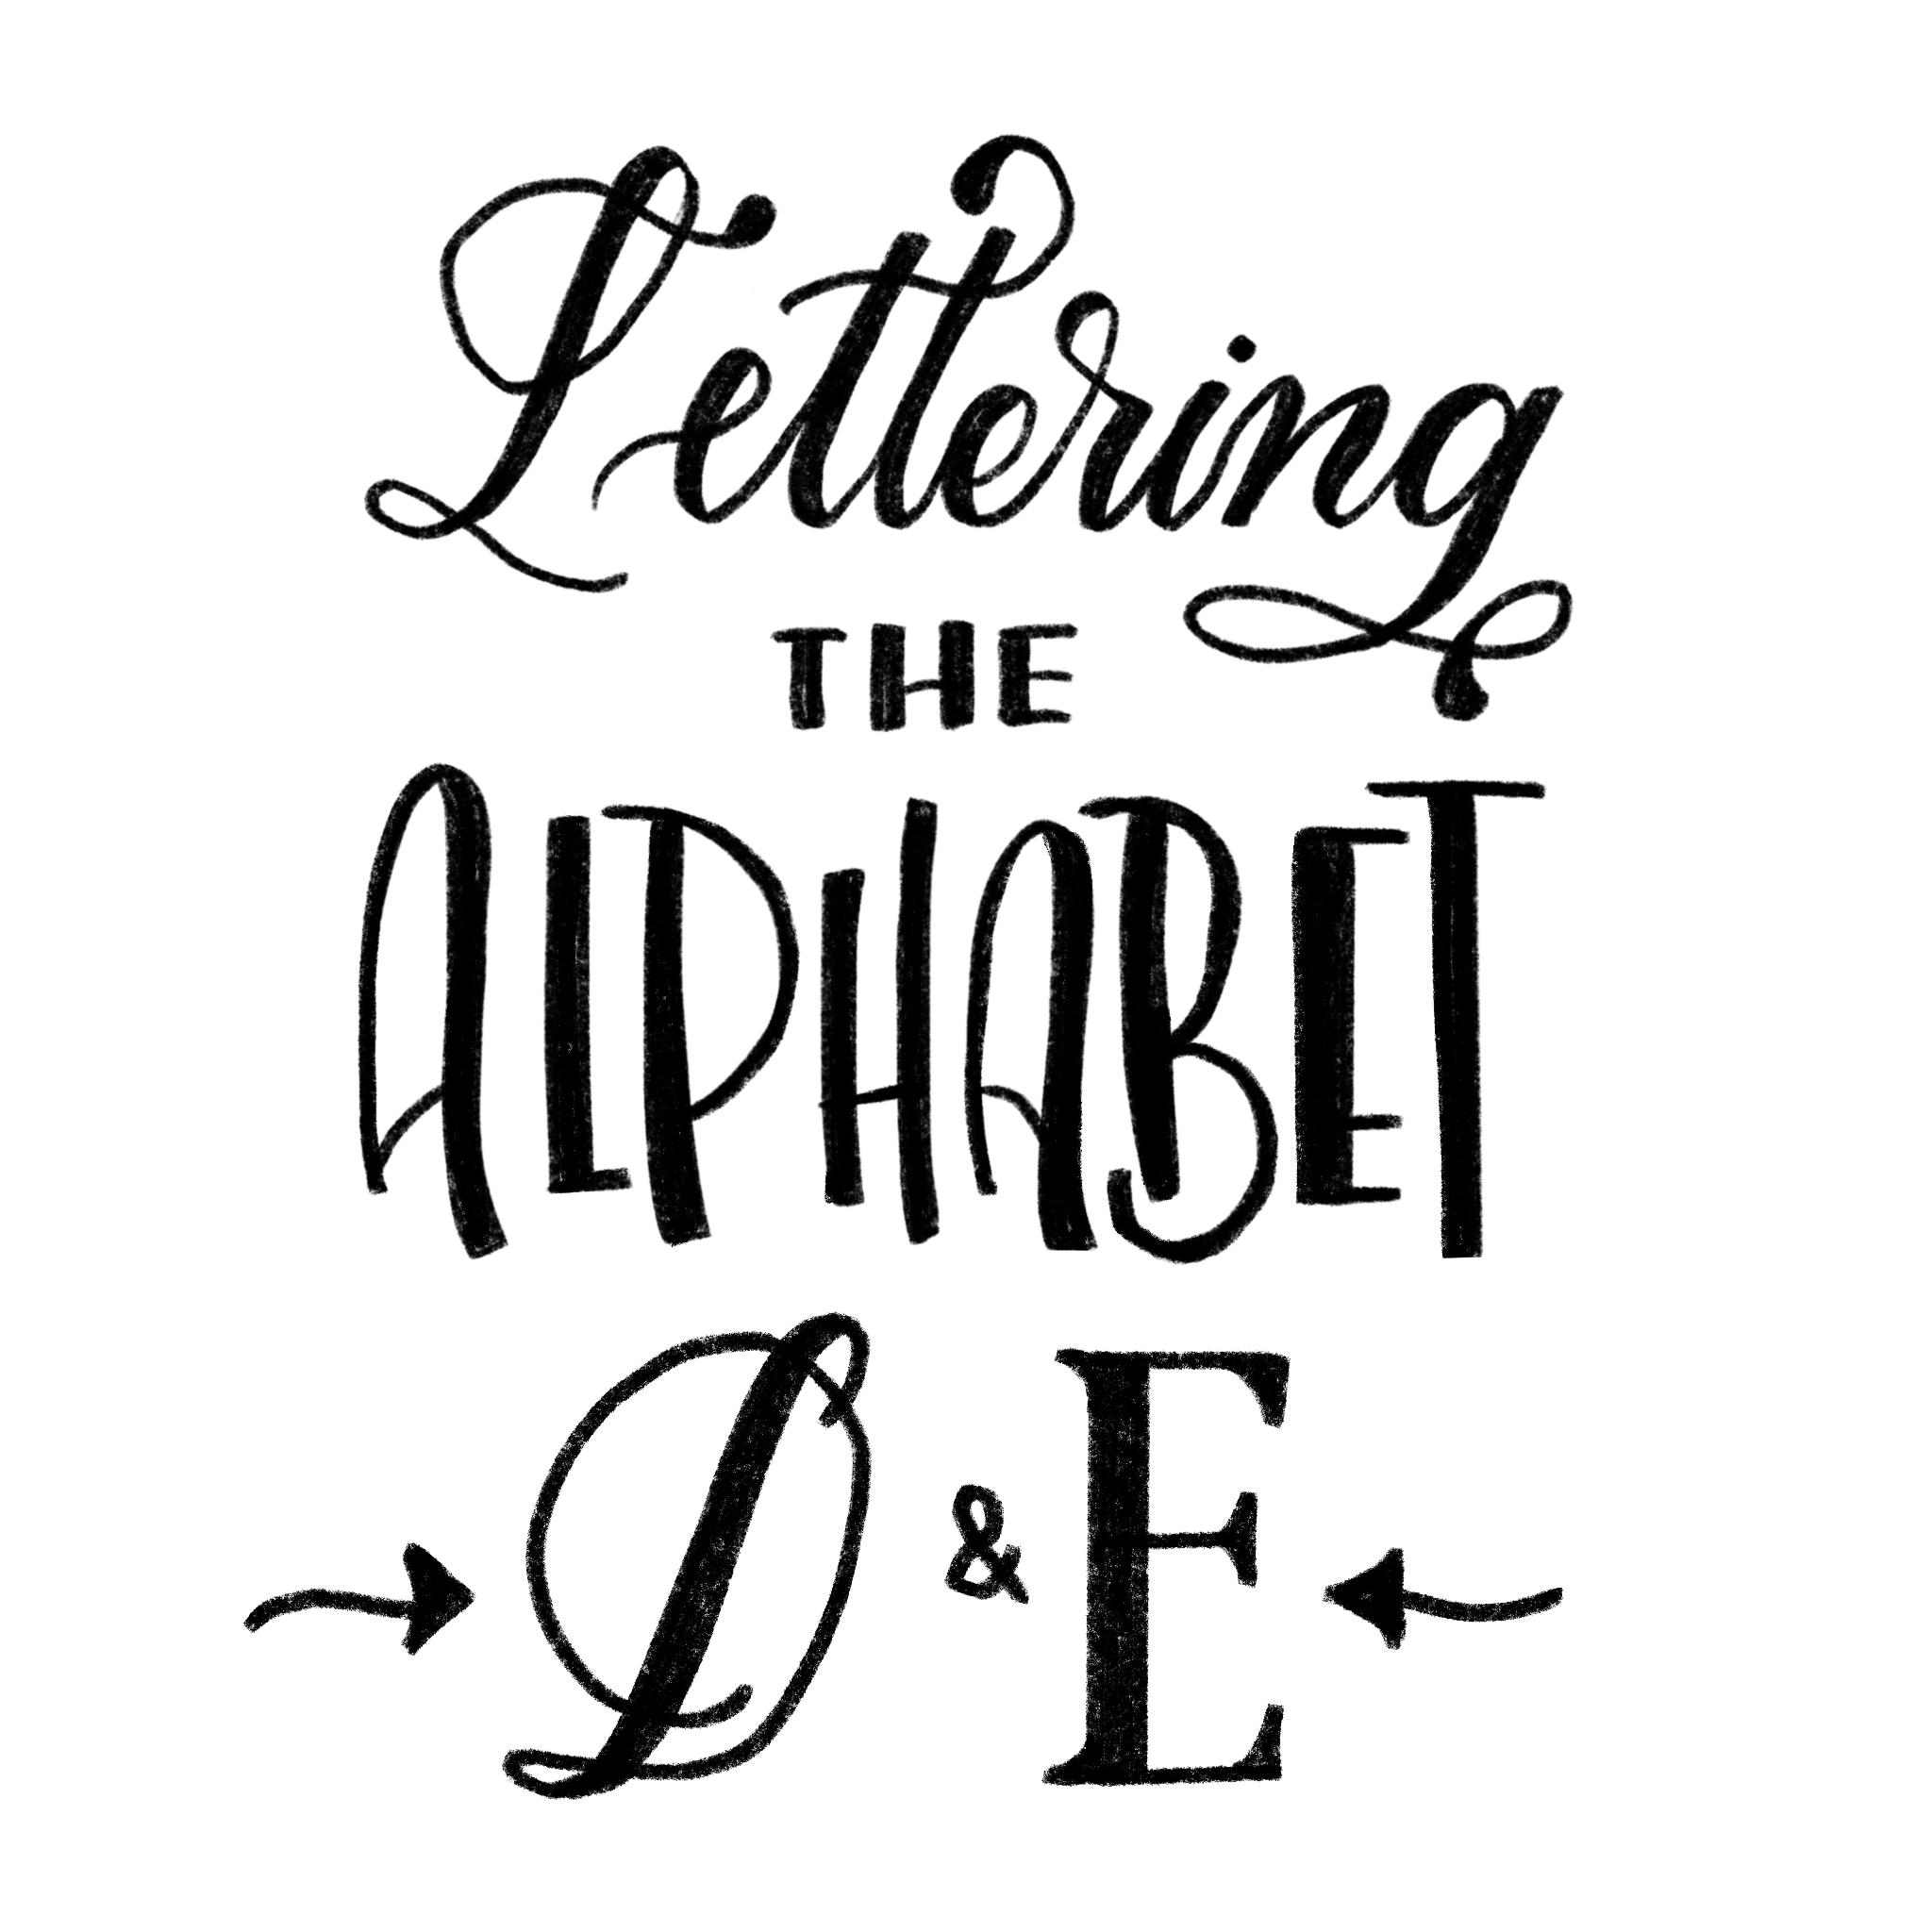 Lettering
THE
ALPHABET
D & E